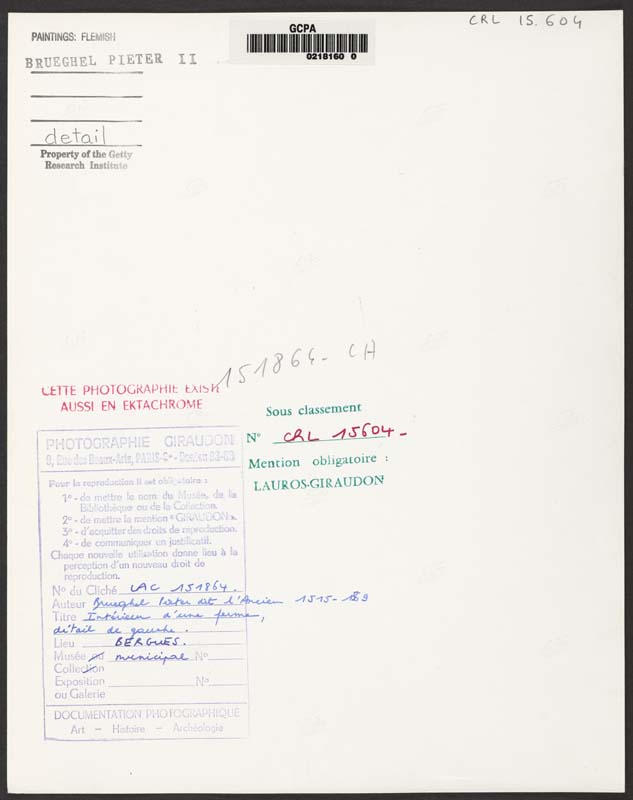 CRL 15.604
GCPA
0218160 0
PAINTINGS: FLEMISH
BRUEGHEL PIETER II
detail
Property of the Getty
Research Institute
151864- CA
CETTE PHOTOGRAPHIE EXISTE
AUSSI EN EKTACHROME
Sous classement
N° CRL 15604-
Mention obligatoire :
LAUROS-GIRAUDON
PHOTOGRAPHIE GIRAUDON
9, Rue des Beaux-Arts, PARIS-6e - Danton 93-83
Pour la reproduction il est obligatoire :
1° - de mettre le nom du Musée, de la
Bibliothèque ou de la Collection.
2° - de mettre la mention "GIRAUDON".
3° - d'acquitter des droits de reproduction.
4° - de communiquer un justificatif.
Chaque nouvelle utilisation donne lieu à la
perception d'un nouveau droit de
reproduction.
N° du Cliché LAC 151864.
Auteur Brueghel Pieter dit l'Ancien 1515-
Titre Intérieur d'une ferme,
détail de gauche.
Lieu BERGUES.
Musée ou municipal N°
Collection
Exposition N°
ou Galerie
DOCUMENTATION PHOTOGRAPHIQUE
Art - Histoire - Archéologie